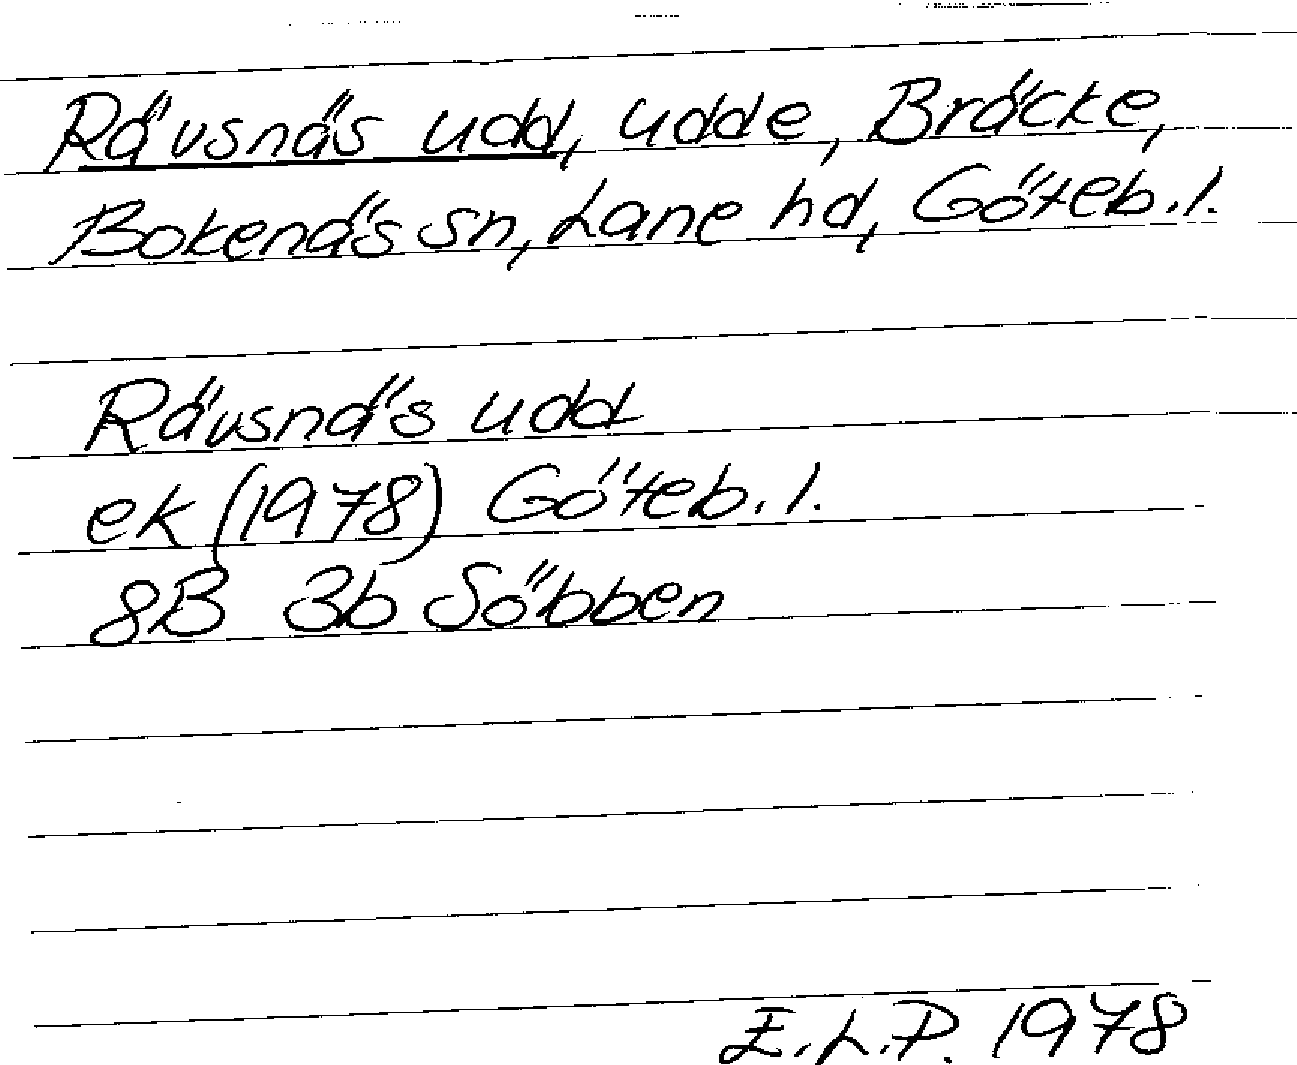 Rävsnäs udd, udde, Bräcke,
Bokenäs sn, Lane hd, Göteb.l.
Rävsnäs udd
ek (1978) Göteb.l.
8B 3b Söbben
E.L.P. 1978